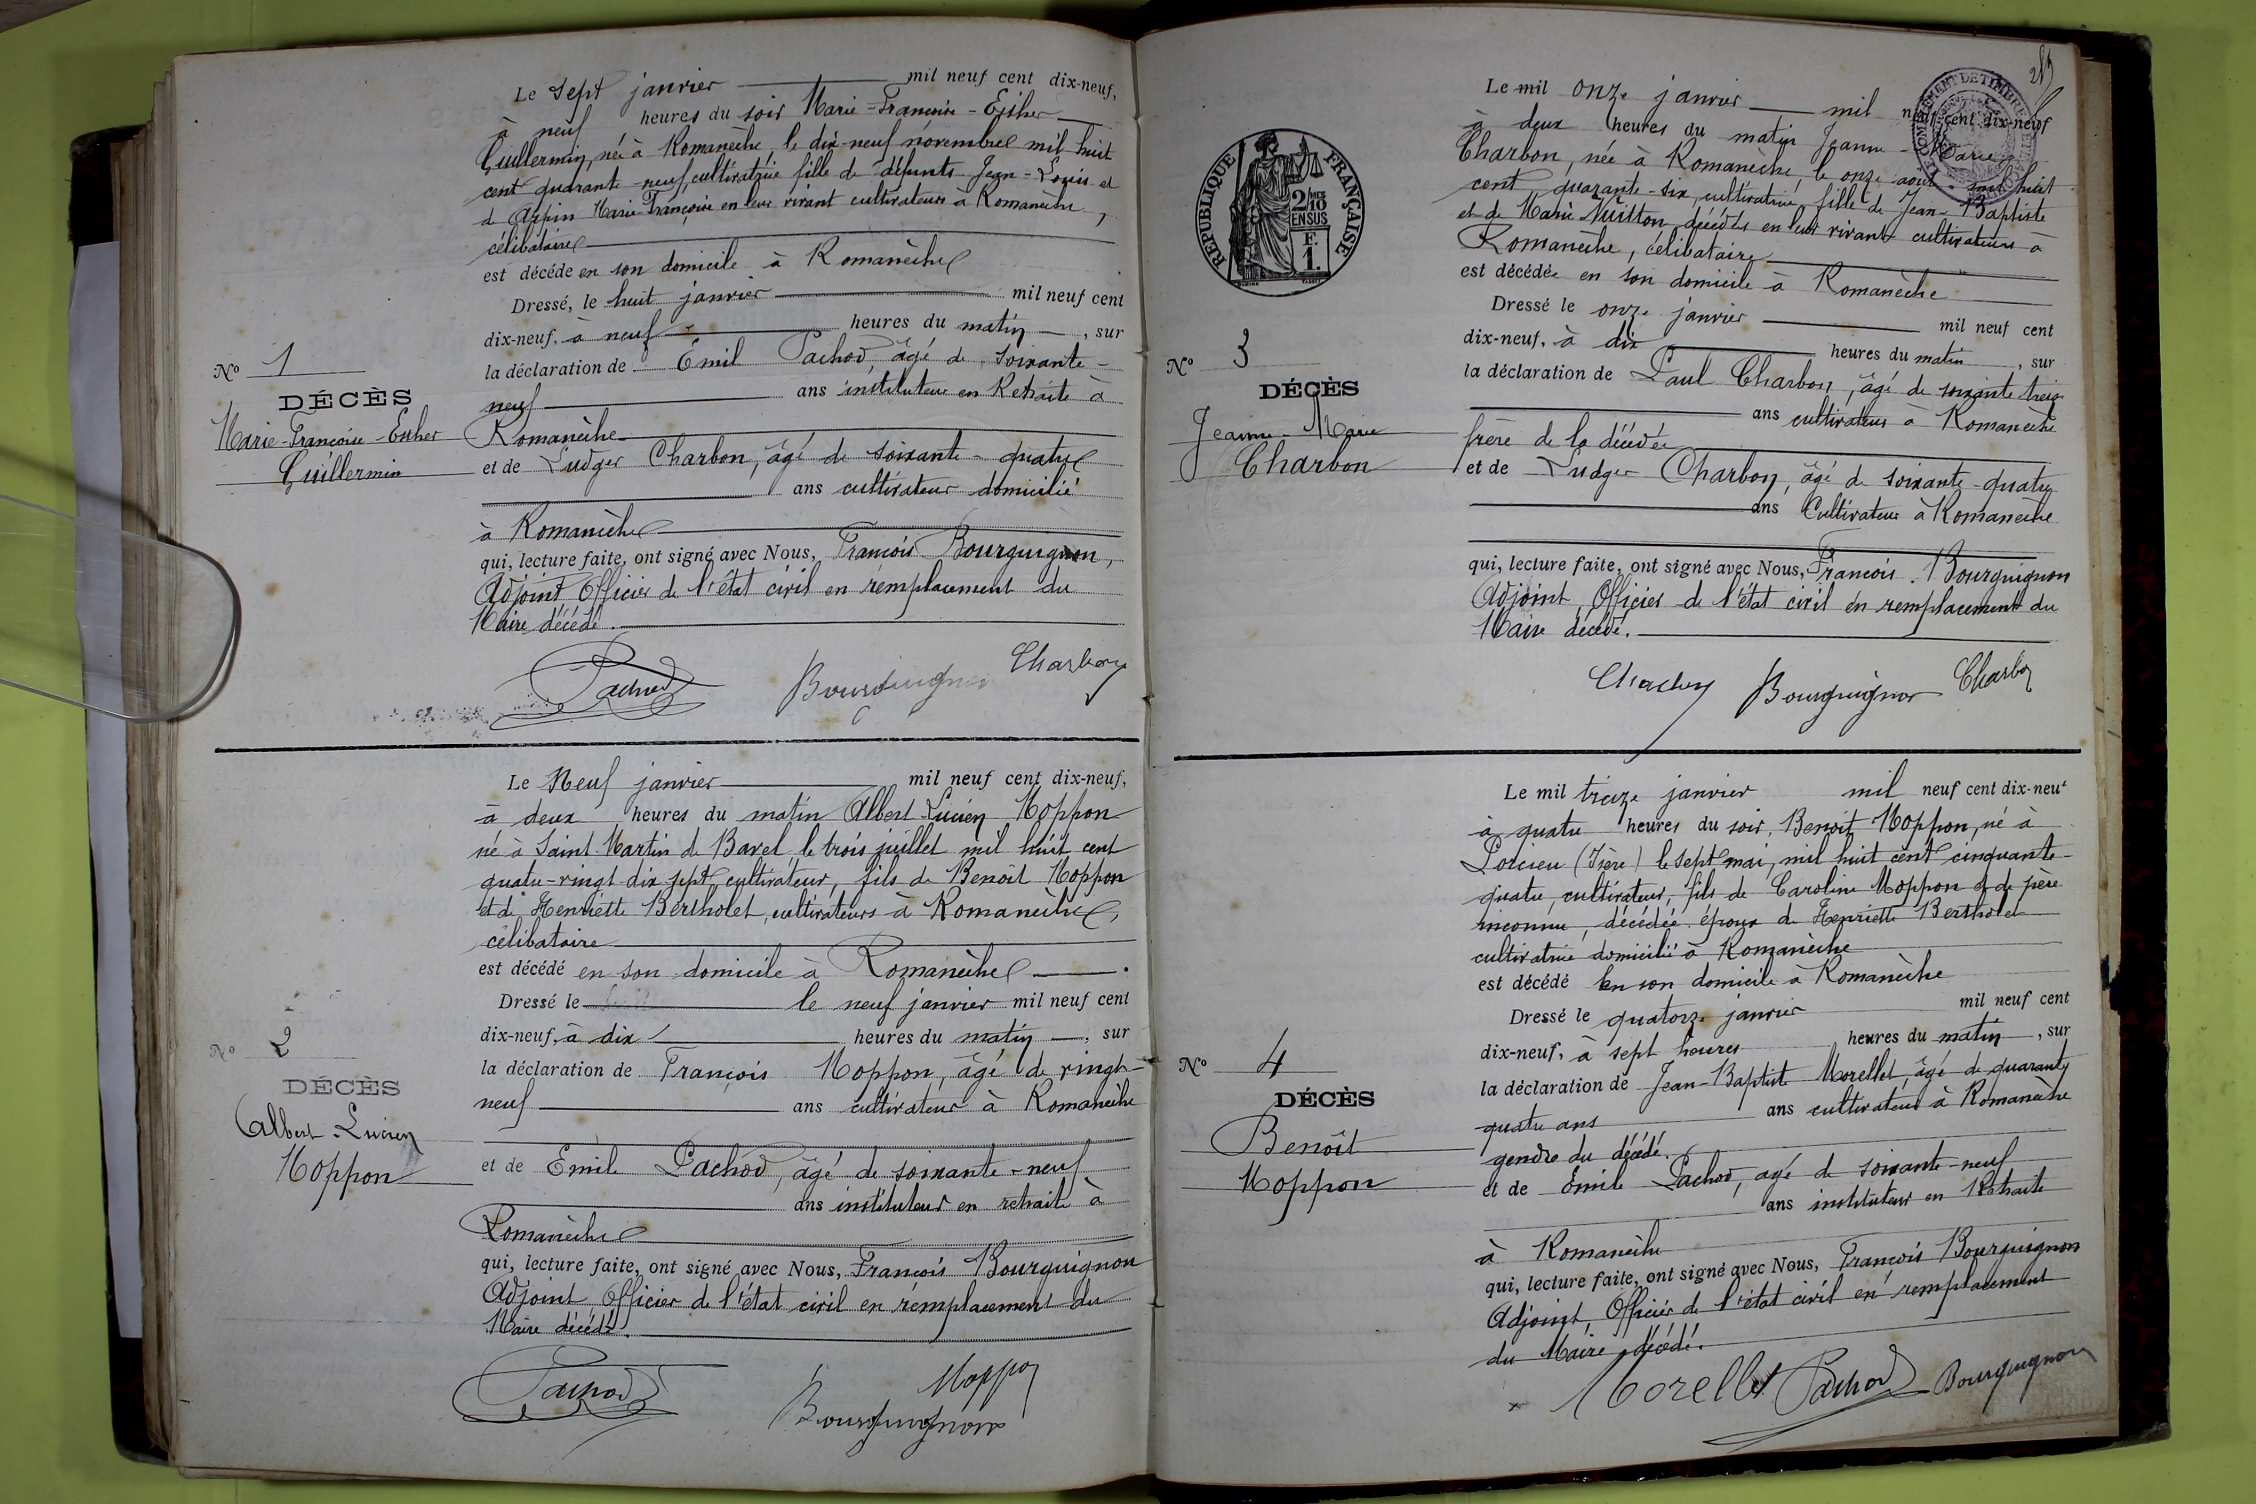 Le sept janvier mil neuf cent dix-neuf,
à neuf heures du soir Marie-Françoise-Esther
Guillermin, née à Romanèche, le dix-neuf novembre mil huit
cent quarante-neuf, cultivatrice fille de défunts Jean-Louis et
d'Arpin Marie Françoise en leur vivant cultivateurs à Romanèche,
célibataire
est décédé en son domicile à Romanèche
Dressé, le huit janvier mil neuf cent
dix-neuf, à neuf heures du matin, sur
la déclaration de Emil Pachod, âgé de soixante-
neuf ans instituteur en Retraite à
Romanèche
et de Ludger Charbon, âgé de soixante-quatre
ans cultivateur domicilié
à Romanèche
qui, lecture faite, ont signé avec Nous, François Bourguignon,
Adjoint Officier de l'état civil en remplacement du
Maire décédé.
Pachod Bourguignon Charbon
No 1
DÉCÈS
Marie-Françoise-Esther
Guillermin
Le Neuf janvier mil neuf cent dix-neuf,
à deux heures du matin Albert Lucien Moppon
né à Saint Martin de Bavel le trois juillet mil huit cent
quatre-vingt dix sept, cultivateur, fils de Benoit Moppon
et de Henriette Bertholet, cultivateurs à Romanèche,
célibataire
est décédé en son domicile à Romanèche.
Dressé le le neuf janvier mil neuf cent
dix-neuf, à dix heures du matin, sur
la déclaration de François Moppon, âgé de vingt-
neuf ans cultivateur à Romanèche
et de Emile Pachod, âgé de soixante-neuf
ans instituteur en retraite à
Romanèche
qui, lecture faite, ont signé avec Nous, François Bourguignon
Adjoint Officier de l'état civil en remplacement du
Maire décédé.
Pachod Bourguignon Moppon
No 2
DÉCÈS
Albert-Lucien
Moppon
RÉPUBLIQUE FRANÇAISE
2 MES
10
EN SUS
F.
1.
Le mil onze janvier mil neuf cent dix-neuf
à deux heures du matin Jeanne-Marie
Charbon, née à Romanèche, le onze août mil huit
cent quarante-six, cultivatrice, fille de Jean-Baptiste
et de Marie Nuitton décédés en leur vivant cultivateurs à
Romanèche, célibataire
est décédée en son domicile à Romanèche
Dressé le onze janvier mil neuf cent
dix-neuf, à dix heures du matin, sur
la déclaration de Paul Charbon, âgé de soixante treize
ans cultivateur à Romanèche
frère de la décédée
et de Ludger Charbon, âgé de soixante-quatre
ans Cultivateur à Romanèche
qui, lecture faite, ont signé avec Nous, François Bourguignon
Adjoint, Officier de l'état civil en remplacement du
Maire décédé.
Charbon Bourguignon Charbon
No 3
DÉCÈS
Jeanne-Marie
Charbon
Le mil treize janvier mil neuf cent dix-neuf
à quatre heures du soir, Benoit Moppon, né à
Porcieu (Isère) le sept mai, mil huit cent cinquante-
quatre, cultivateur, fils de Caroline Moppon et de père
inconnu, décédée époux de Henriette Bertholet
cultivatrice domiciliée à Romanèche
est décédé en son domicile à Romanèche
Dressé le quatorze janvier mil neuf cent
dix-neuf, à sept heures heures du matin, sur
la déclaration de Jean-Baptiste Morellet, âgé de quarante
quatre ans ans cultivateur à Romanèche
gendre du décédé.
et de Emile Pachod, âgé de soixante-neuf
ans instituteur en Retraite
à Romanèche
qui, lecture faite, ont signé avec Nous, François Bourguignon
Adjoint, Officier de l'état civil en remplacement
du Maire décédé.
Morellet Pachod Bourguignon
No 4
DÉCÈS
Benoît
Moppon